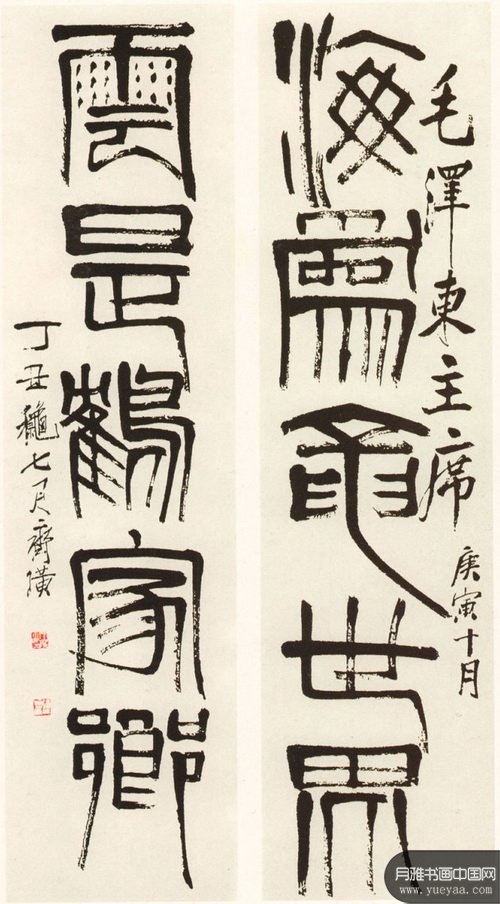 毛澤東主席
庚寅十月
海爲龍世界
雲是鶴家鄉
丁丑龝七月齊璜
月雅书画中国网
www.yueyaa.com